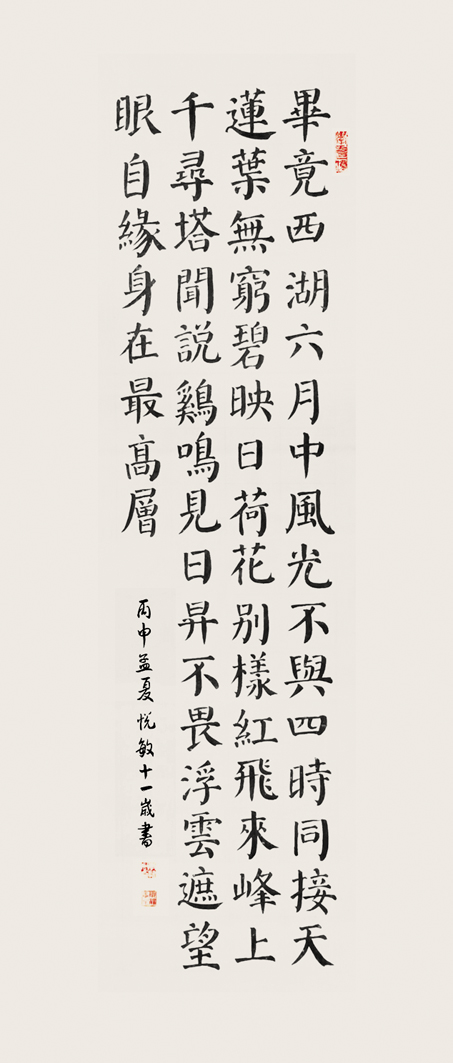 畢竟西湖六月中風光不與四時同接天
蓮葉無窮碧映日荷花别樣紅飛來峰上
千尋塔聞説鷄鳴見日昇不畏浮雲遮望
眼自緣身在最高層
丙申孟夏悦敏十一歲書